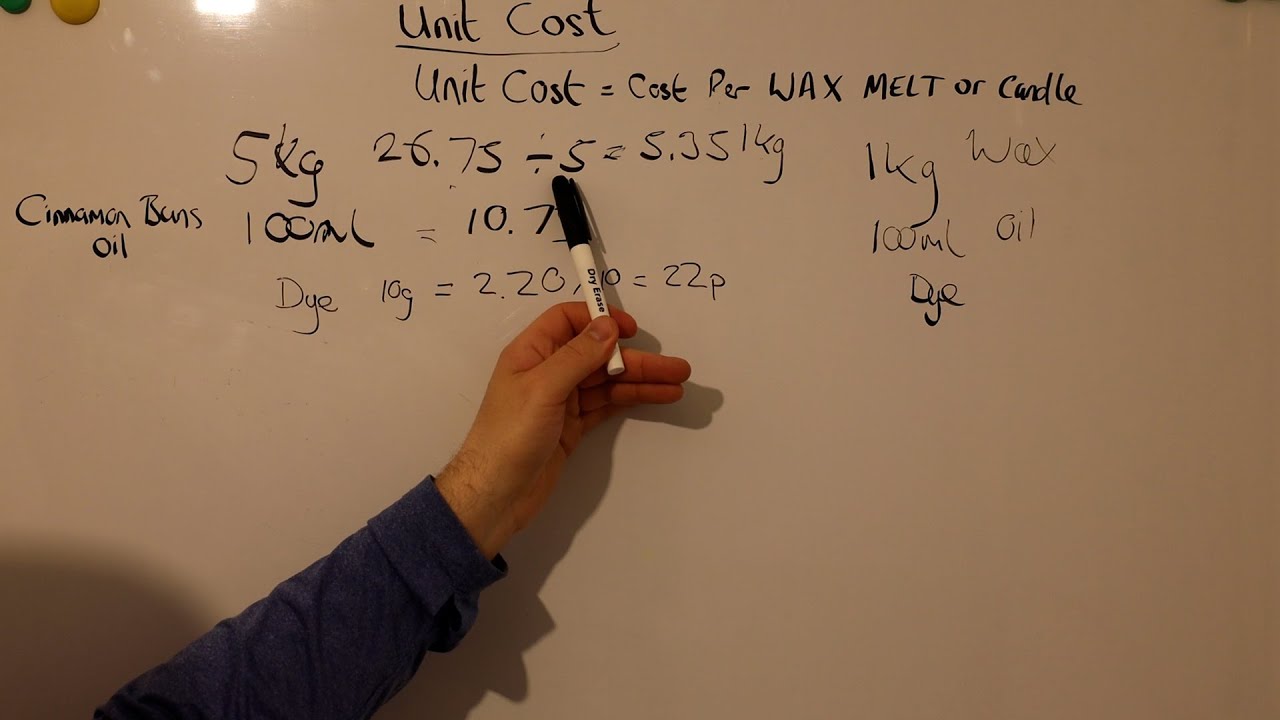 Unit Cost
Unit Cost = Cost Per WAX MELT or Candle
5kg 26.75 ÷ 5 = 5.35 1kg
1kg Wax
Cinnamon Buns
Oil
100ml = 10.7
100ml Oil
Dye 10g = 2.20 / 10 = 22p
Dye
Dry Erase